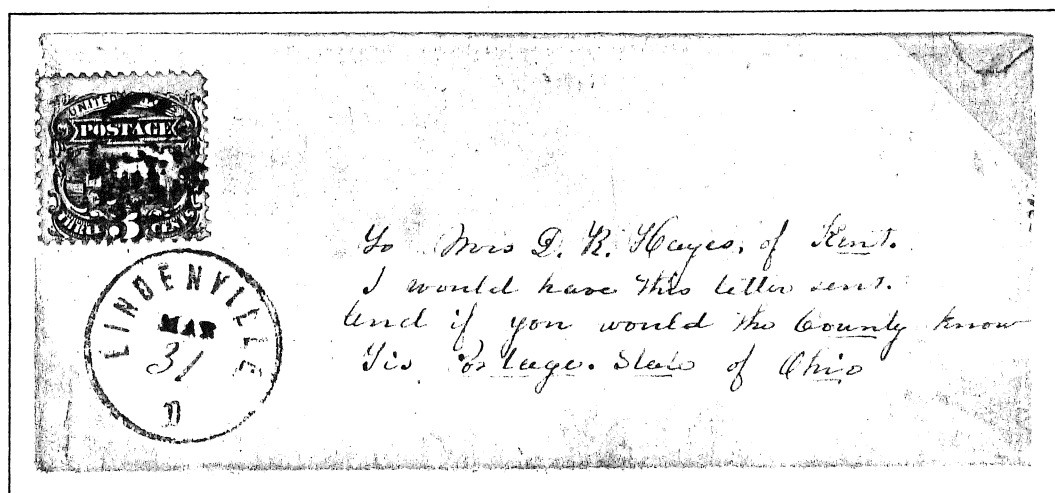 UNITED
POSTAGE
3 CENTS
LINDENVILLE
MAR
31
O
To Mrs D. R. Hayes, of Kent.
I would have this letter sent.
And if you would the County know
Tis Portage. State of Ohio